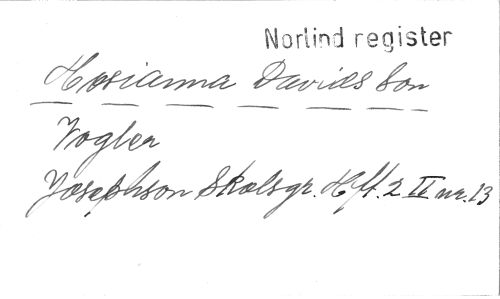 Norlind register
Hosianna Davids Son
Vogler
Josephson Skolsgr. Hft. 2 II nr. 13